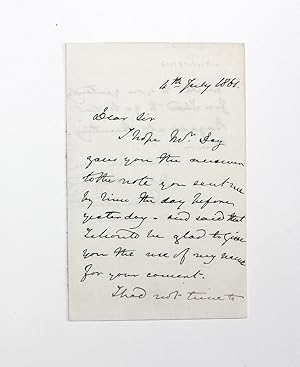 4th July 1861.
Dear Sir
I hope Mr. Day
gave you the answer
to the note you sent me
by him the day before
yesterday - and said that
I should be glad to give
you the use of my name
for your concert.
I had not time to